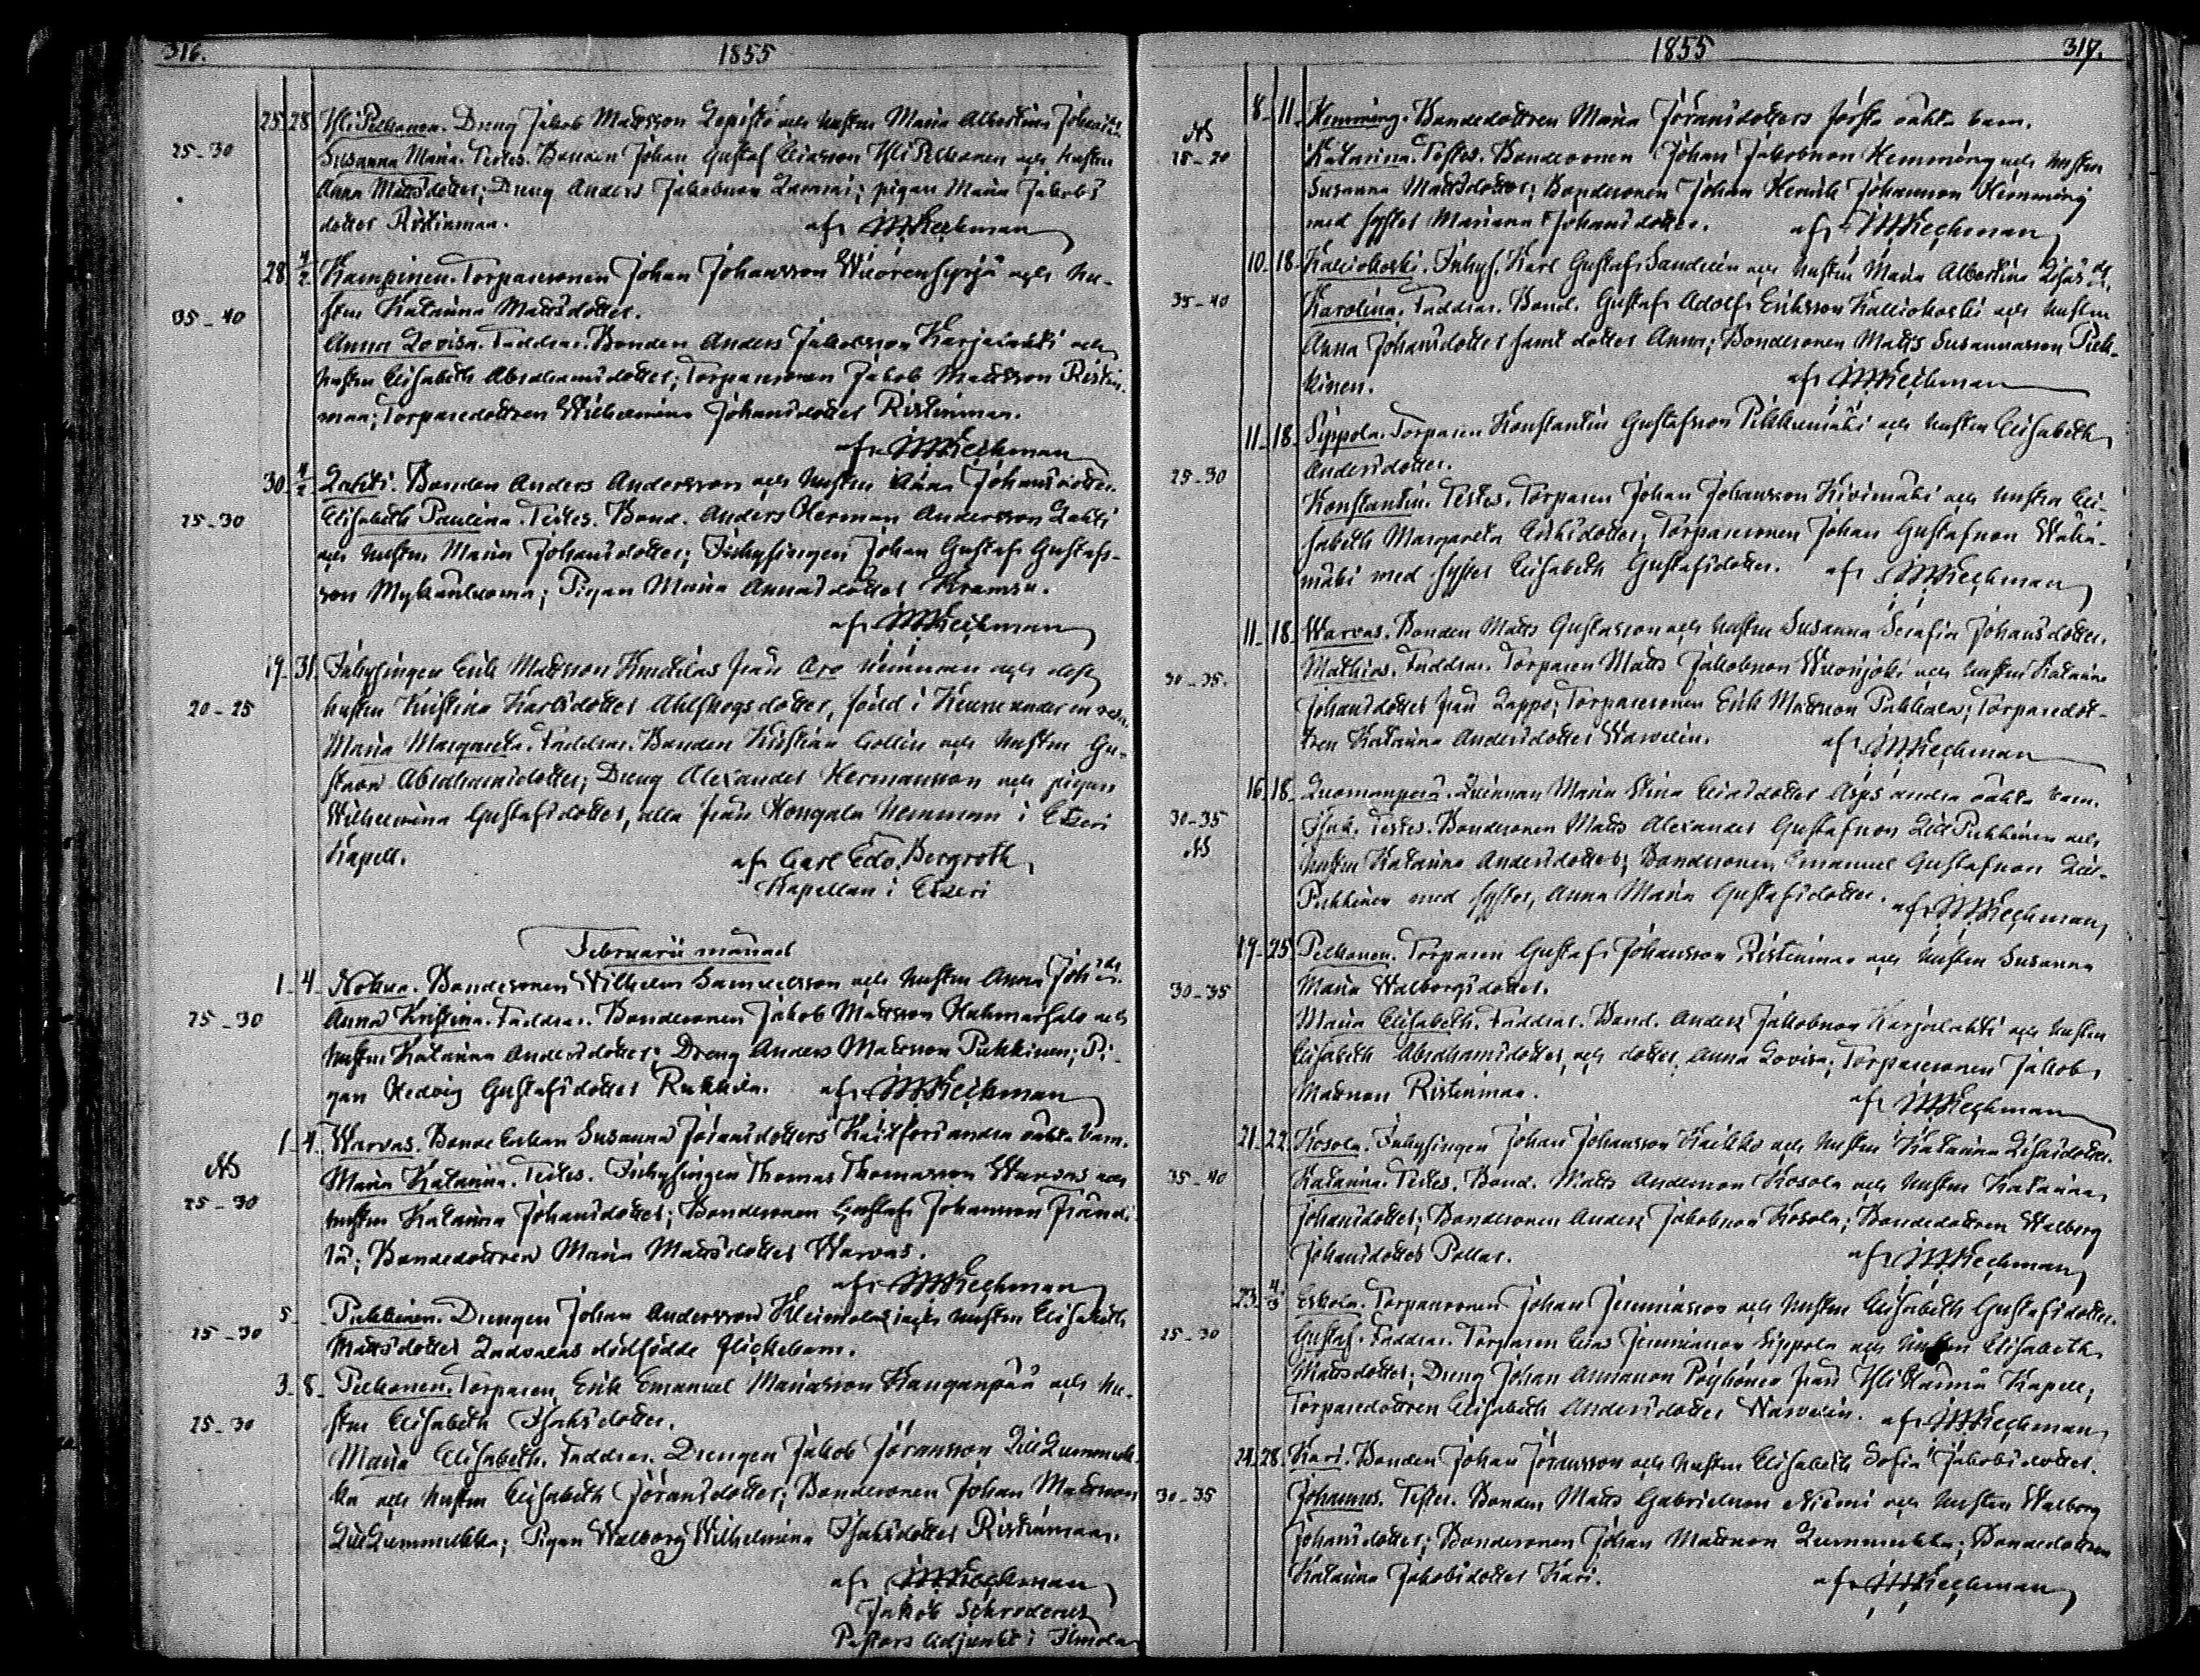 316. 1855
25 28 Yli Pelkonen. Dreng Jakob Mattsson Lepistö och hustru Maria Albertina Johansd.
25-30 Susanna Maria. Testes. Bonden Johan Gustaf Eliasson Yli Pelkonen och hustru
Anna Mattsdotter; Dreng Anders Jakobsson Lammi; pigan Maria Jakobs
dotter Ristimaa. af M Keckman
28 4/2 Kampinen. Torparesonen Johan Johansson Wuorensyrjä och hu-
35-40 stru Katarina Mattsdotter.
Anna Lovisa. Faddrar. Bonden Anders Jakobsson Karjalahti och
hustru Elisabeth Abrahamsdotter; Torparesonen Jakob Mattsson Ristin-
maa; Torparedottren Wilhelmina Johansdotter Ristinmaa.
af M Keckman
30 4/2 Lahti. Bonden Anders Andersson och hustru Anna Johansdotter.
25-30 Elisabeth Paulina. Testes. Bond. Anders Herman Andersson Lahti
och hustru Maria Johansdotter; Inhysingen Johan Gustaf Gustafs-
son; Pigan Maria Annasdotter Kramsu.
af M Keckman
19-31 Inhysingen Erik Mattsson Knuttilas från Aro hemman och dess
20-25 hustru Kristina Karlsdotter Ahlskogs dotter, född i Keuru under en resa
Maria Margareta. Faddrar. Bonden Kristian Collin och hustru Gu-
stava Abrahamsdotter; Dreng Alexander Hermansson och pigan
Wilhelmina Gustafsdotter, alla från Hemman i Etseri
Kapell. af Carl Edv. Bergroth,
Kapellan i Etseri
Februarii månad
1-4 Nokua. Bondesonen Wilhelm Samuelsson och hustru Anna Joh dr.
25-30 Anna Kristina. Faddrar. Bondesonen Jakob Mattsson och
hustru Katarina Andersdotter; Dreng Anders Mattsson Pukkinen; Pi-
gan Hedvig Gustafsdotter Rukkila. af M Keckman
1-4 Warvas. Bonde Enkan Susanna Jöransdotters Kaitfors andra oäkta barn.
25-30 Maria Katarina. Testes. Inhysingen Thomas Thomasson Warvas och
hustru Katarina Johansdotter; Bondesonen Gustaf Johansson Frändi-
lä; Bondedottren Maria Mattsdotter Warvas.
af M Keckman
5 Pukkinen. Drengen Johan Andersson och hustru Elisabeth
25-30 Mattsdotter dödfödde flickebarn.
3-8 Pelkonen. Torparen Erik Emanuel Mariasson Kanganpää och hu-
25-30 stru Elisabeth Isaksdotter.
Maria Elisabeth. Faddrar. Drengen Jakob Jöransson LillLummuk-
ka och hustru Elisabeth Jöransdotter; Bondesonen Johan Mattsson
LillLummukka; Pigan Walborg Wilhelmina Isaksdotter Ristinmaa.
af M Keckman
Jakob Schroderus
Pastors Adjunkt i Ilmola
1855 317.
8-11 Hemming. Bondedottren Maria Jöransdotters första oäkta barn.
15-20 Katarina. Testes. Bondesonen Johan Jakobsson Hemming och hustru
Susanna Mattsdotter; Bondesonen Johan Henrik Johansson Hemming
med syster Mariana Johansdotter. af M Keckman
10-18 Kalliokoski. Inhys. Karl Gustaf Sandelin och hustru Maria Albertina dr.
35-40 Karolina. Faddrar. Bond. Gustaf Adolf Eriksson Kalliokoski och hustru
Anna Johansdotter samt dotter Anna; Bondesonen Matts Susannasson Puk-
kinen. af M Keckman
11-18 Sippola. Torparen Konstantin Gustafsson Pikkumäki och hustru Elisabeth
25-30 Andersdotter.
Konstantin. Testes. Torparen Johan Johansson Kivimäki och hustru Eli-
sabeth Margareta Eriksdotter; Torparesonen Johan Gustafsson
mäki med syster Elisabeth Gustafsdotter. af M Keckman
11-18 Warvas. Bonden Matts Gustafsson och hustru Susanna Serafia Johansdotter.
30-35 Mathias. Faddrar. Torparen Matts Jakobsson Wuorijoki och hustru Katarina
Johansdotter från Lappo; Torparesonen Erik Mattsson Pukkala; Torparedot-
tren Katarina Andersdotter Warvelin. af M Keckman
16-18 Luomanperä. Qvinnan Maria Stina Eliasdotter Asps andra oäkta barn.
30-35 Isak. Testes. Bondesonen Matts Alexander Gustafsson Lill Pukkinen och
hustru Katarina Andersdotter; Bondesonen Emanuel Gustafsson Lill-
Pukkinen med syster, Anna Maria Gustafsdotter. af M Keckman
19-25 Pelkonen. Torparen Gustaf Johansson Ristinmaa och hustru Susanna
30-35 Maria Walborgsdotter.
Maria Elisabeth. Faddrar. Bond. Anders Jakobsson Karjalahti och hustru
Elisabeth Abrahamsdotter, och dotter Anna Lovisa; Torparesonen Jakob
Mattsson Ristinmaa. af M Keckman
21-22 Kosola. Inhysingen Johan Johansson Kaikko och hustru Katarina
35-40 Katarina. Testes. Bond. Matts Andersson Kosola och hustru Katarina
Johansdotter; Bondesonen Anders Jakobsson Kosola; Bondedottren Walborg
Johansdotter Pollar. af M Keckman
23 4/3 Eskola. Torparesonen Johan Jeremiasson och hustru Elisabeth Gustafsdotter.
25-30 Gustaf. Faddrar. Torparen Elias Jeremiasson Sippola och hustru Elisabeth
Mattsdotter; Dreng Johan Annasson Pöyhönen från Ylihärmä Kapell;
Torparedottren Elisabeth Andersdotter Warvelin. af M Keckman
24-28 Kari. Bonden Johan Jöransson och hustru Elisabeth Sofia Jakobsdotter.
30-35 Johannes. Testes. Bonden Matts Gabrielsson Niemi och hustru Walborg
Johansdotter; Bondesonen Johan Mattsson Lummukka; Bondedottren
Katarina Jakobsdotter Kari. af M Keckman